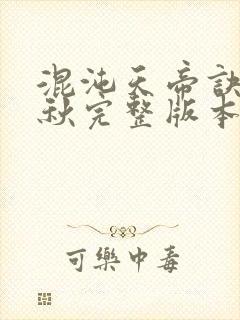 混沌天帝訣
秋完整版本
可樂中毒